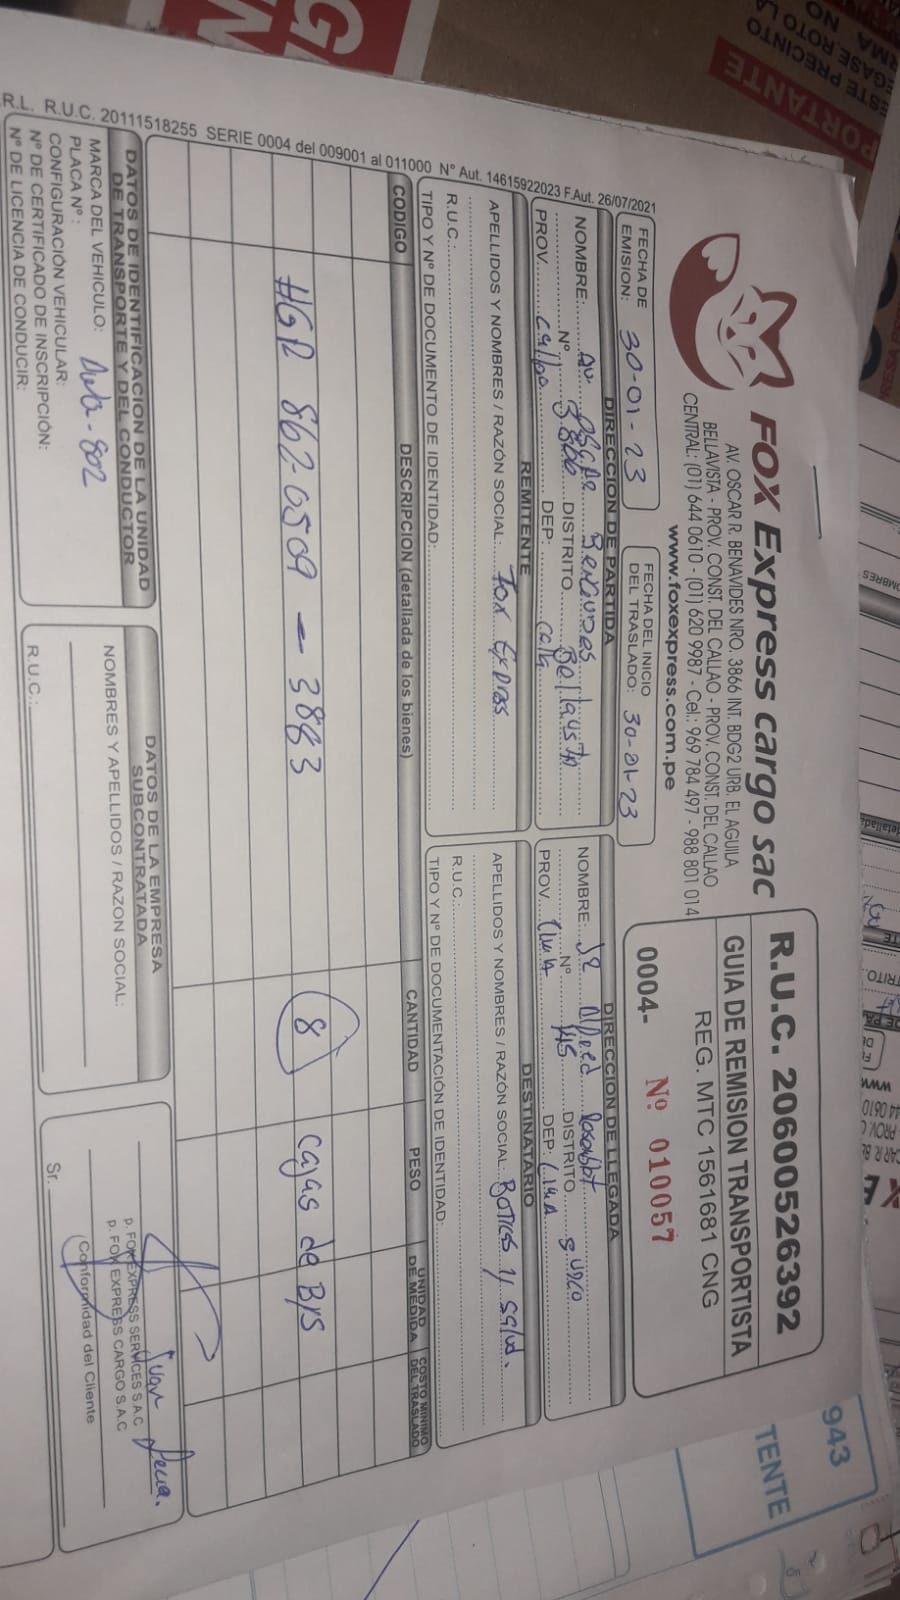 FOX Express cargo sac
AV. OSCAR R. BENAVIDES NRO. 3866 INT. BDG2 URB. EL AGUILA
BELLAVISTA - PROV. CONST. DEL CALLAO - PROV. CONST. DEL CALLAO
CENTRAL: (01) 644 0610 - (01) 620 9987 - Cel.: 969 784 497 - 988 801 014
www.foxexpress.com.pe
R.U.C. 20600526392
GUIA DE REMISION TRANSPORTISTA
REG. MTC 1561681 CNG
0004- Nº 010057
FECHA DE EMISION: 30-01-23
FECHA DEL INICIO DEL TRASLADO: 30-01-23
DIRECCION DE PARTIDA
NOMBRE: AV OSCAR Benavides
Nº 3866 DISTRITO Bellavista
PROV. callao DEP:
DIRECCION DE LLEGADA
NOMBRE: JR Alfred
Nº DISTRITO SURCO
PROV. LIMA DEP: LIMA
REMITENTE
APELLIDOS Y NOMBRES / RAZÓN SOCIAL: Fox Express
R.U.C.
TIPO Y Nº DE DOCUMENTO DE IDENTIDAD:
DESTINATARIO
APELLIDOS Y NOMBRES / RAZÓN SOCIAL: Boticas y salud.
R.U.C.
TIPO Y Nº DE DOCUMENTACIÓN DE IDENTIDAD:
CODIGO DESCRIPCION (detallada de los bienes) CANTIDAD PESO UNIDAD DE MEDIDA COSTO MINIMO DEL TRASLADO
HGR 862-0509 - 3883 8 cajas de
DATOS DE IDENTIFICACION DE LA UNIDAD
DE TRANSPORTE Y DEL CONDUCTOR
MARCA DEL VEHICULO:
PLACA Nº: -802
CONFIGURACIÓN VEHICULAR:
Nº DE CERTIFICADO DE INSCRIPCIÓN:
Nº DE LICENCIA DE CONDUCIR:
DATOS DE LA EMPRESA
SUBCONTRATADA
NOMBRES Y APELLIDOS / RAZON SOCIAL:
R.U.C.:
p. FOX EXPRESS SERVICES S.A.C
p. FOX EXPRESS CARGO S.A.C
Conformidad del Cliente
Sr.
R.L. R.U.C. 20111518255 SERIE 0004 del 009001 al 011000 Nº Aut. 14615922023 F.Aut. 26/07/2021
943
TENTE
PORTANTE
ESTE PRECINTO
EGASE ROTO LA